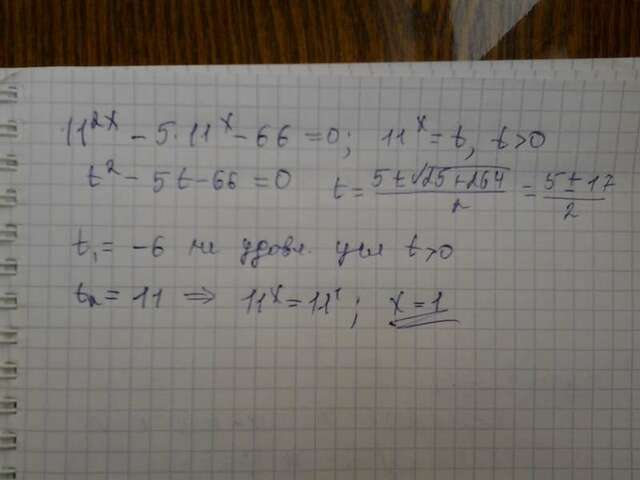 11^{2x} - 5·11^x - 66 = 0; 11^x = t, t>0
t² - 5t - 66 = 0 t = \frac{5±\sqrt{25+264}}{2} = \frac{5±17}{2}
t₁ = -6 не удовл. усл t>0
t₂ = 11 ⇒ 11^x = 11¹; x = 1